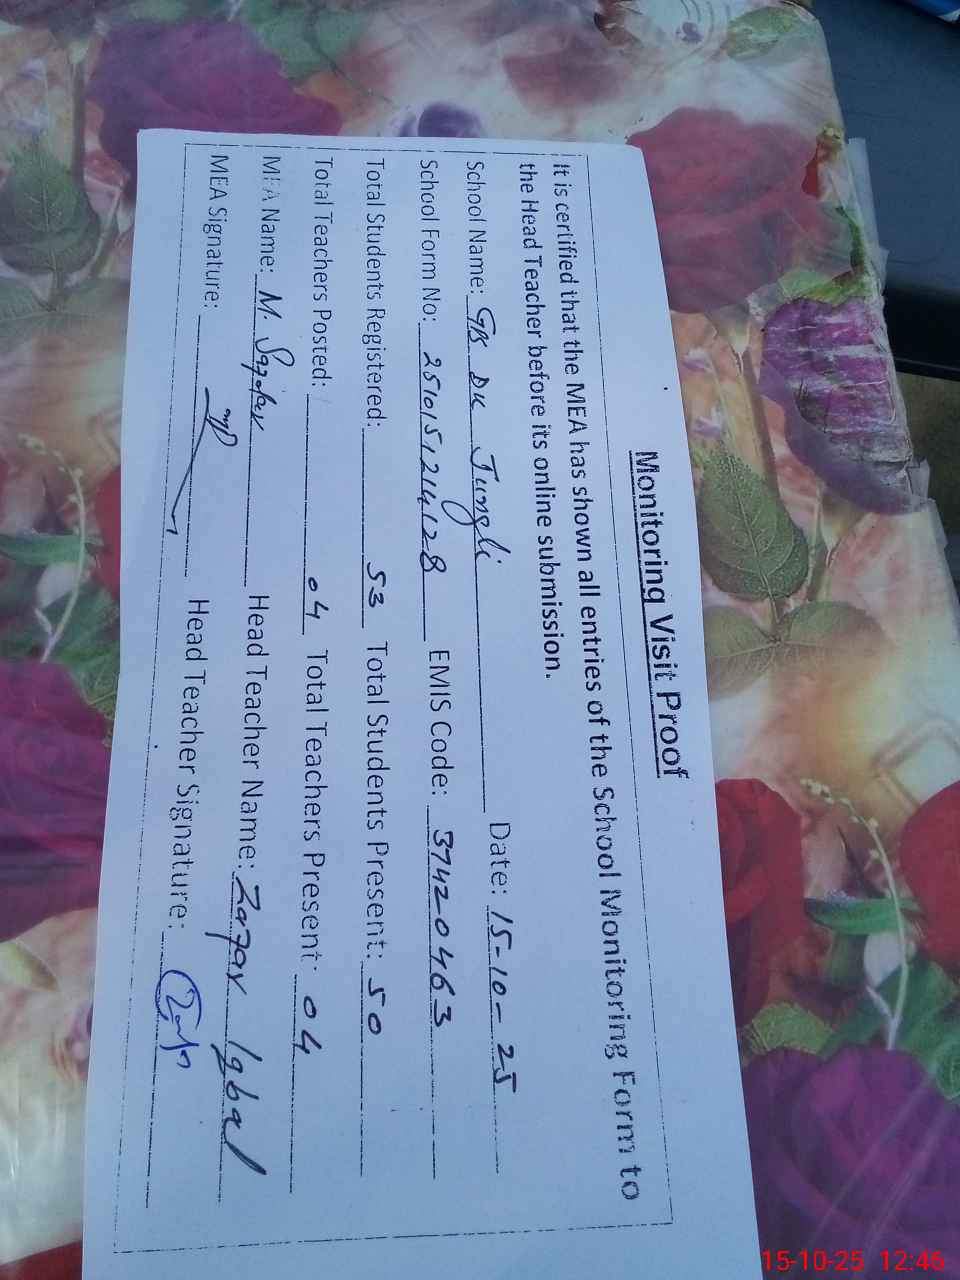 Monitoring Visit Proof
It is certified that the MEA has shown all entries of the School Monitoring Form to
the Head Teacher before its online submission.
School Name: GPS DK Jungli Date: 15-10-25
School Form No: 2510151214128 EMIS Code: 37420463
Total Students Registered: 53 Total Students Present: 50
Total Teachers Posted: 04 Total Teachers Present: 04
MEA Name: M. Safdar Head Teacher Name: Zafar Iqbal
MEA Signature: Head Teacher Signature:
15-10-25 12:46